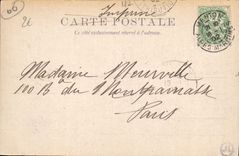 06
2f
Imprimé
CARTE POSTALE
Ce côté exclusivement réservé à l'adresse.
Madame Meurville
100 Bd du Montparnasse
Paris